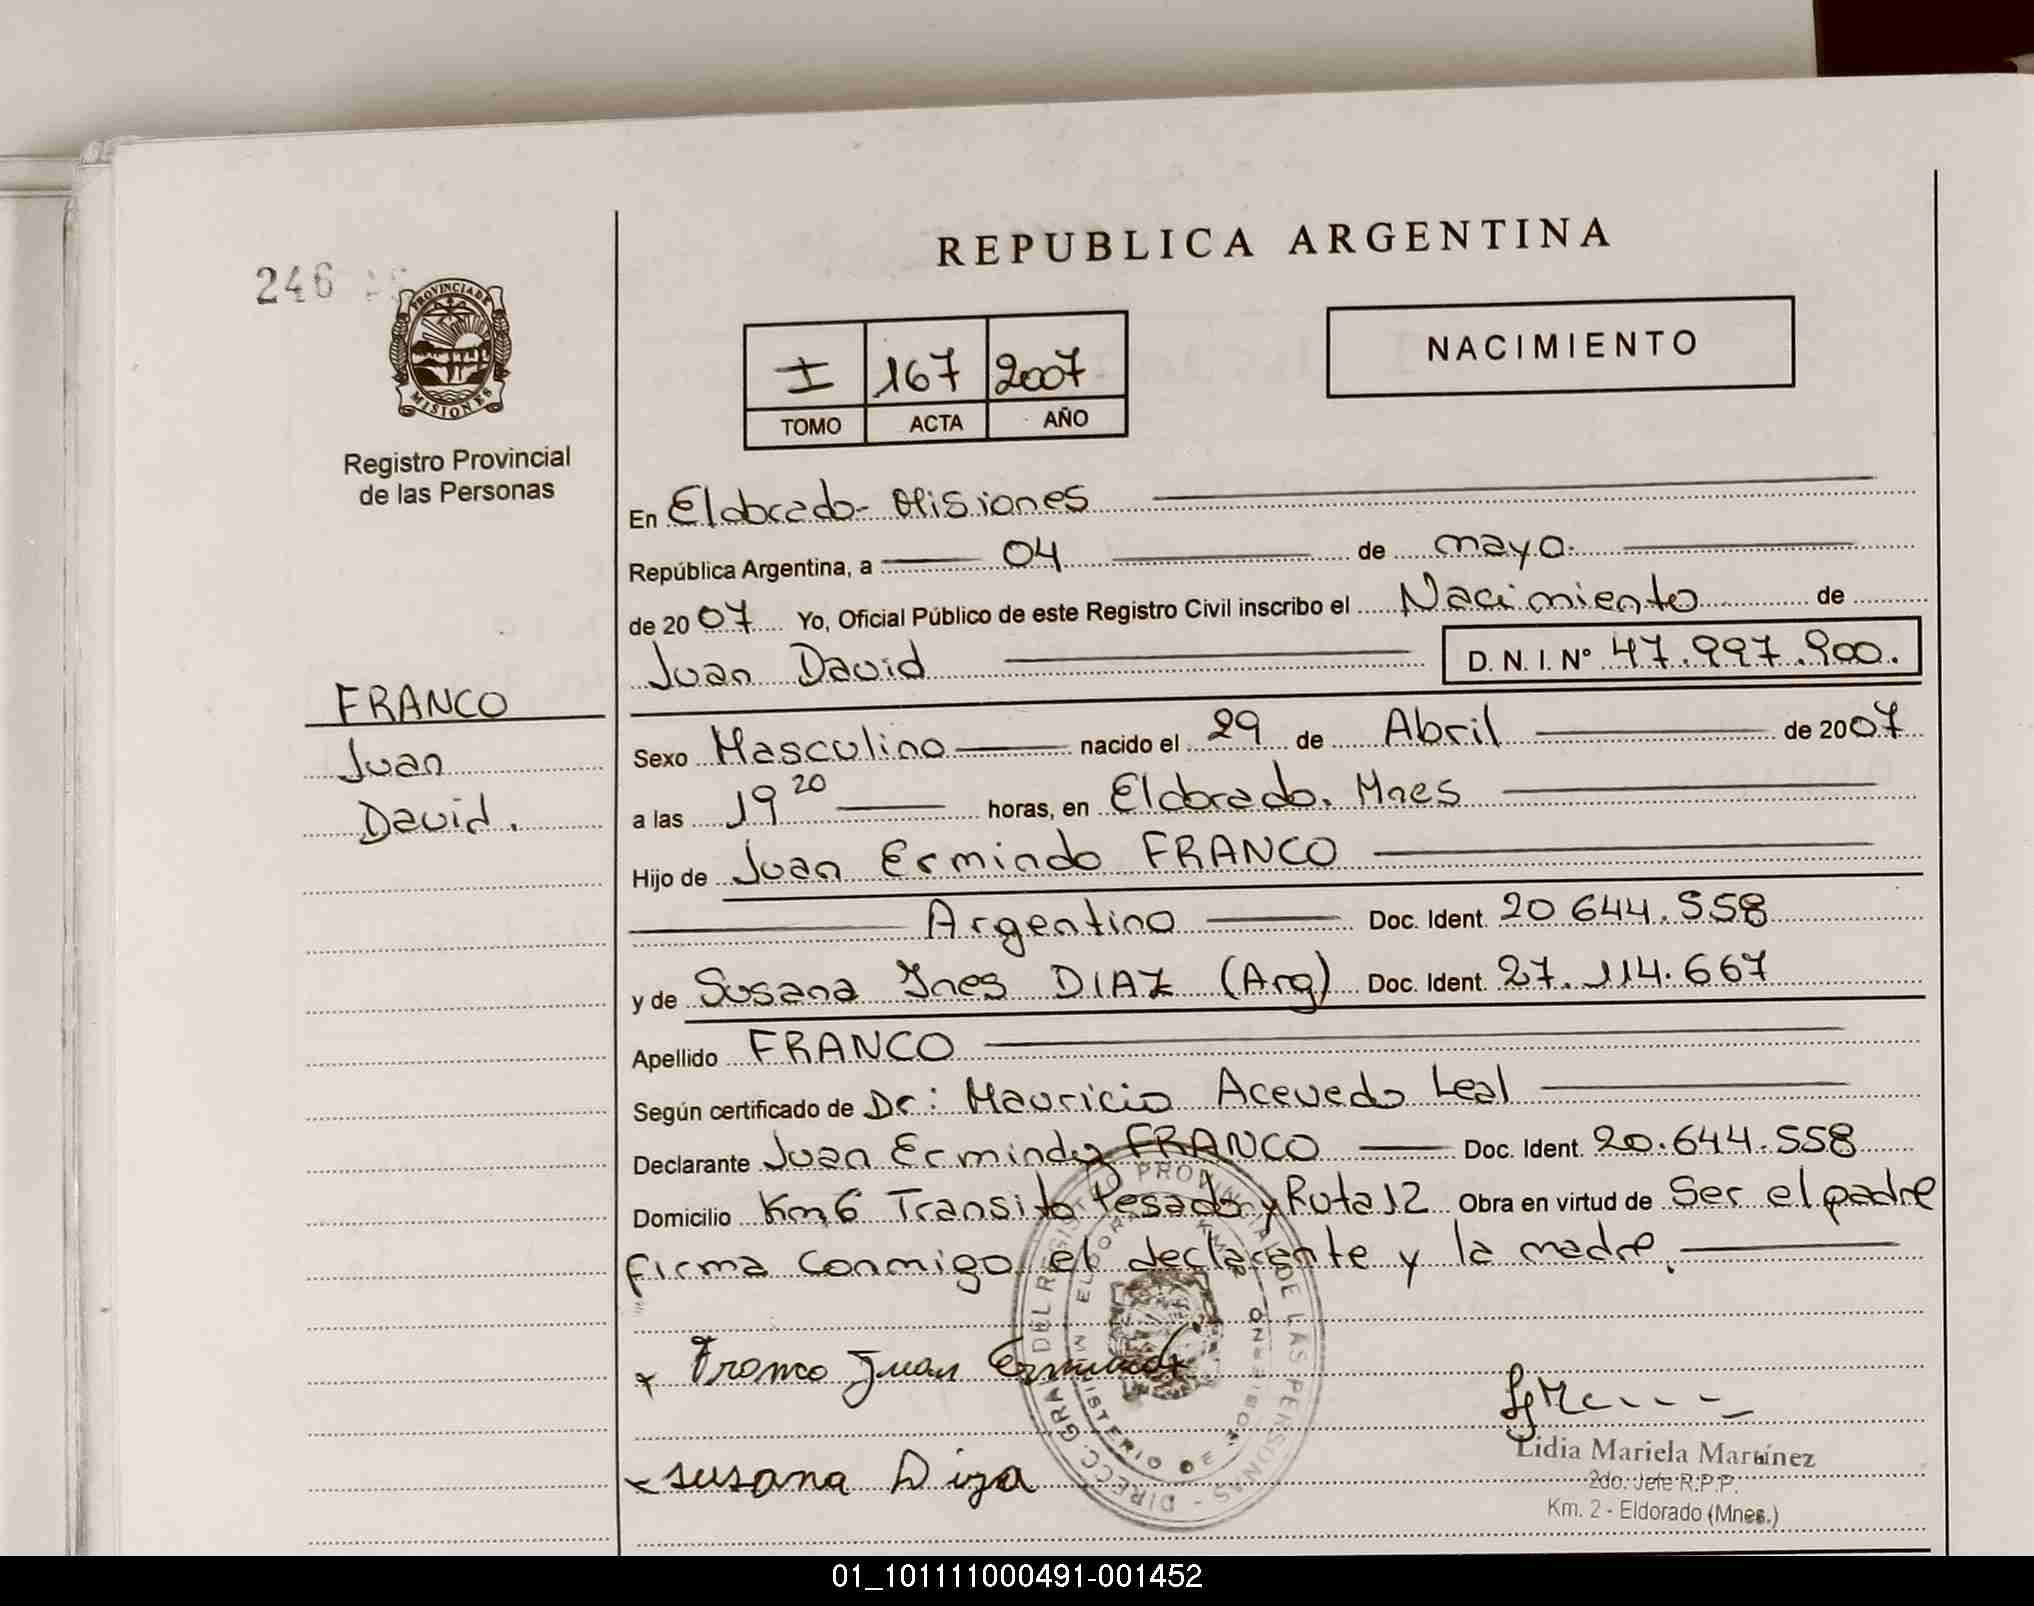 REPUBLICA ARGENTINA
246
PROVINCIA DE
MISIONES
Registro Provincial
de las Personas
I 167 2007
TOMO ACTA AÑO
NACIMIENTO
FRANCO
Juan
David.
En Eldorado- Misiones
República Argentina, a 04 de mayo.
de 2007 Yo, Oficial Público de este Registro Civil inscribo el Nacimiento de
Juan David D. N. I. Nº 47.997.900.
Sexo Masculino nacido el 29 de Abril de 2007
a las 19 20 horas, en Eldorado. Mnes
Hijo de Juan Ermindo FRANCO
Argentino Doc. Ident. 20 644.558
y de Susana Ines DIAZ (Arg) Doc. Ident. 27.114.667
Apellido FRANCO
Según certificado de Dr: Mauricio Acevedo Leal
Declarante Juan Ermindo FRANCO Doc. Ident. 20.644.558
Domicilio Km6 Transito Pesado y Ruta 12 Obra en virtud de Ser el padre
firma conmigo el declarante y la madre.
x Franco Juan Ermindo
x susana Diza
DIRECC. GRAL DEL REGISTRO PROVINCIAL DE LAS PERSONAS
Lidia Mariela Martínez
2do. Jefe R.P.P.
Km. 2 - Eldorado (Mnes.)
01_101111000491-001452